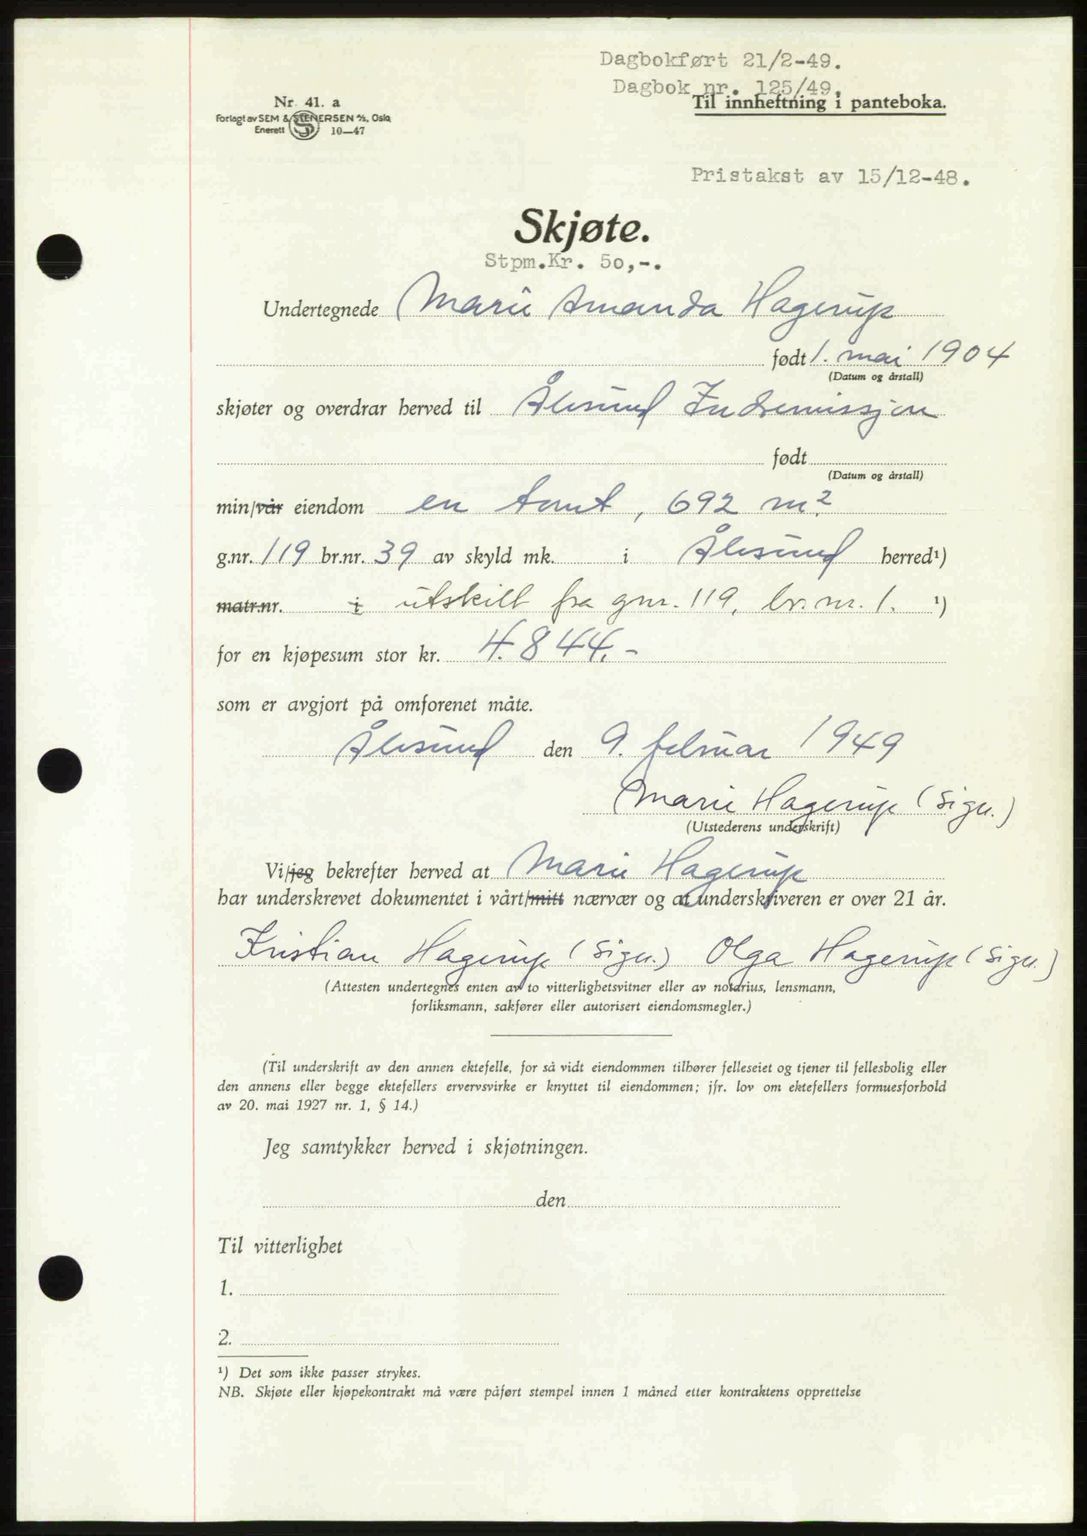 Dagbokført 21/2-49.
Dagbok nr. 125/49.
Til innheftning i panteboka.
Nr. 41. a
Forlagt av SEM & STENERSEN A/S, Oslo
Enerett S 10—47
Pristakst av 15/12-48.
Skjøte.
Stpm.Kr. 50,-.
Undertegnede Marie Amanda Hagerup
født 1. mai 1904
(Datum og årstall)
skjøter og overdrar herved til Ålesund Indremissjon
født
(Datum og årstall)
min/vår eiendom en tomt, 692 m².
g.nr. 119 br.nr. 39 av skyld mk. i Ålesund herred¹)
matr.nr. i utskilt fra gnr. 119, br.nr. 1. ¹)
for en kjøpesum stor kr. 4.844,-
som er avgjort på omforenet måte.
Ålesund den 9. februar 1949
Marie Hagerup (sign.)
(Utstederens underskrift)
Vi/jeg bekrefter herved at Marie Hagerup
har underskrevet dokumentet i vårt/mitt nærvær og at underskriveren er over 21 år.
Kristian Hagerup (sign.) Olga Hagerup (sign.)
(Attesten undertegnes enten av to vitterlighetsvitner eller av notarius, lensmann,
forliksmann, sakfører eller autorisert eiendomsmegler.)
(Til underskrift av den annen ektefelle, for så vidt eiendommen tilhører felleseiet og tjener til fellesbolig eller
den annens eller begge ektefellers ervervsvirke er knyttet til eiendommen; jfr. lov om ektefellers formuesforhold
av 20. mai 1927 nr. 1, § 14.)
Jeg samtykker herved i skjøtningen.
den
Til vitterlighet
1.
2.
¹) Det som ikke passer strykes.
NB. Skjøte eller kjøpekontrakt må være påført stempel innen 1 måned etter kontraktens opprettelse